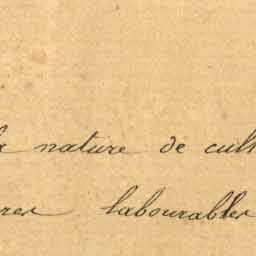 la nature de cult
res labourables